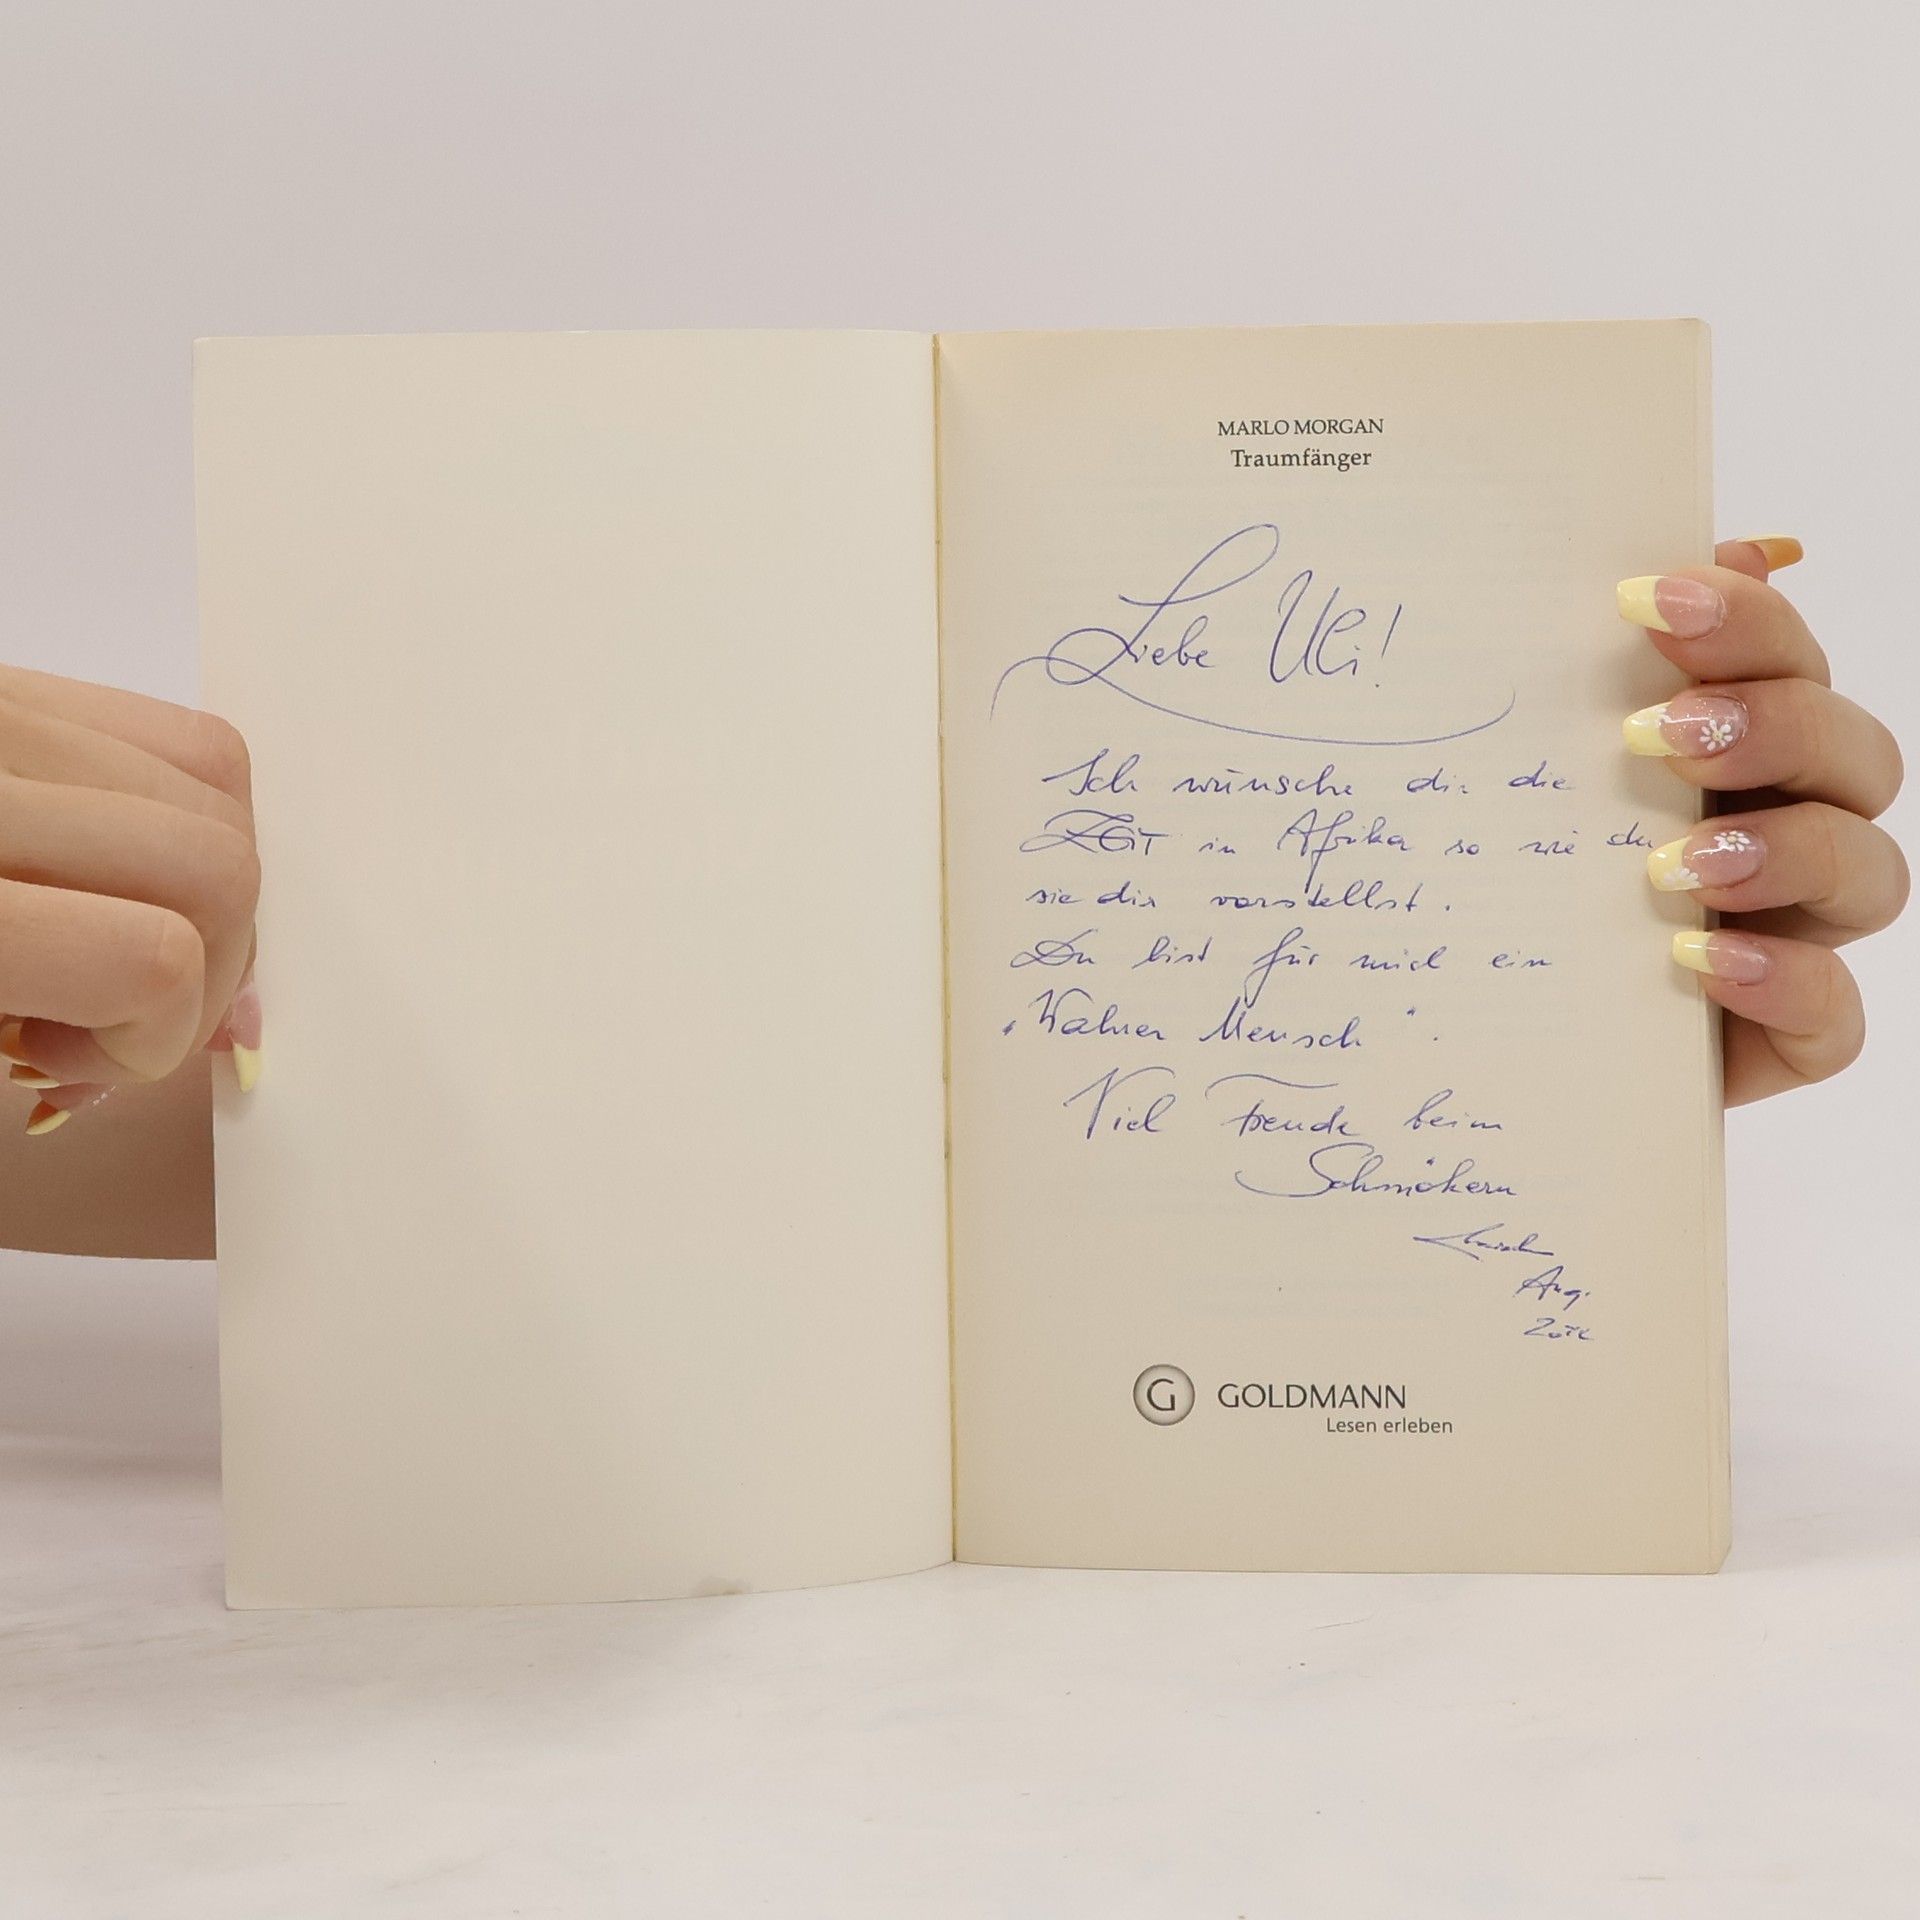 MARLO MORGAN
Traumfänger
Liebe Uli!
Ich wünsche dir die
ZEIT in Afrika so wie du
sie dir vorstellst.
Du bist für mich ein
„Wahrer Mensch".
Viel Freude beim
Schmökern
Aug.
G GOLDMANN
Lesen erleben